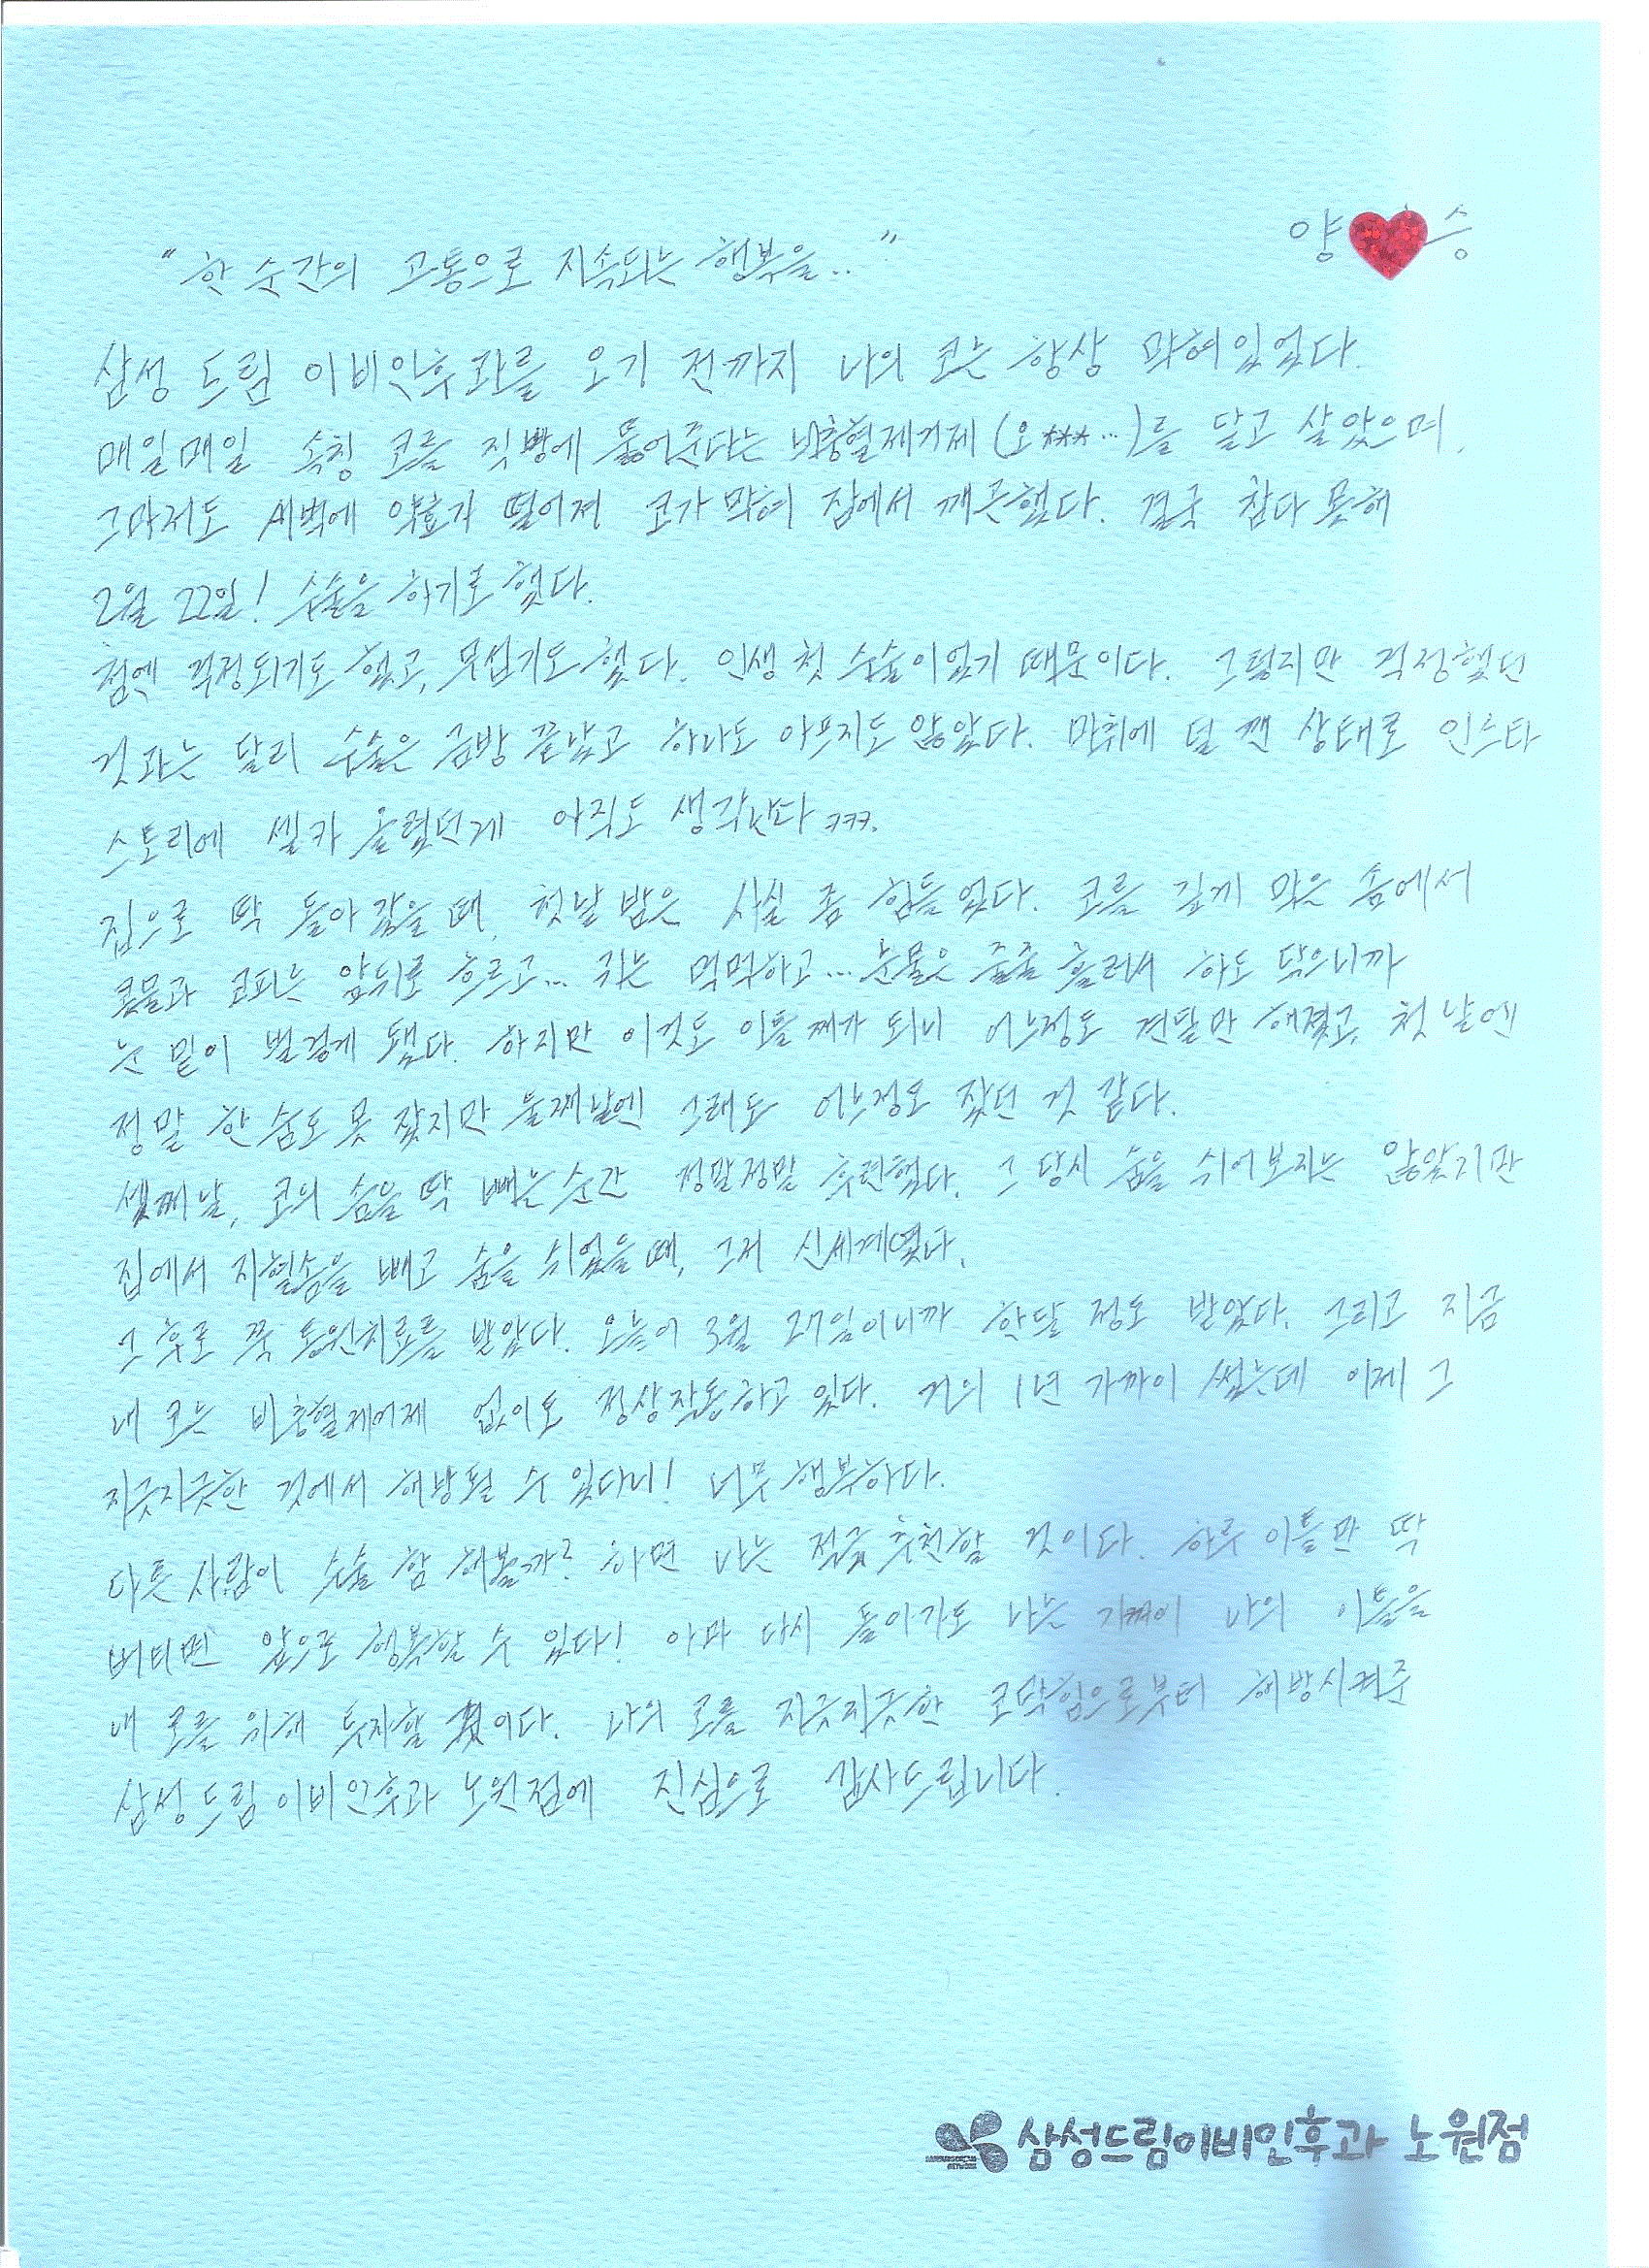 양 승
"한 순간의 고통으로 지속되는 행복을.."
삼성 드림 이비인후과를 오기 전까지 나의 코는 항상 막혀있었다.
매일매일 속칭 코를 직빵에 뚫어준다는 비충혈제거제(오***…)를 달고 살았으며,
그마저도 새벽에 약효가 떨어져 코가 막혀 집에서 깨곤했다. 결국 참다 못해
2월 22일! 수술을 하기로 했다.
첨엔 걱정되기도 했고, 무섭기도 했다. 인생 첫 수술이었기 때문이다. 그렇지만 걱정했던
것과는 달리 수술은 금방 끝났고 하나도 아프지도 않았다. 마취에 덜 깬 상태로 인스타
스토리에 셀카 올렸던게 아직도 생각난다 ㅋㅋㅋ.
집으로 딱 돌아 갔을 때, 첫날 밤은 사실 좀 힘들었다. 코를 깊게 막은 솜에서
콧물과 코피는 앞뒤로 흐르고… 귀는 먹먹하고… 눈물은 줄줄 흘러서 하도 닦으니까
눈 밑이 벌겋게 됐다. 하지만 이것도 이틀째가 되니 어느정도 견딜만 해졌고, 첫 날엔
정말 한 숨도 못 잤지만 둘째날엔 그래도 어느정도 잤던 것 같다.
셋째날, 코의 솜을 딱 빼는순간 정말정말 후련했다. 그 당시 숨을 쉬어보지는 않았지만
집에서 지혈솜을 빼고 숨을 쉬었을때, 그저 신세계였다.
그 후로 쭉 통원치료를 받았다. 오늘이 3월 27일이니까 한달 정도 받았다. 그리고 지금
내 코는 비충혈제거제 없이도 정상작동하고 있다. 거의 1년 가까이 썼는데 이제 그
지긋지긋한 것에서 해방될 수 있다니! 너무 행복하다.
다른 사람이 수술 함 해볼까? 하면 나는 적극 추천할 것이다. 하루 이틀만 딱
버티면 앞으로 행복할 수 있다! 아마 다시 돌아가도 나는 기꺼이 나의 이틀을
내 코를 위해 투자할 것이다. 나의 코를 지긋지긋한 코막힘으로부터 해방시켜준
삼성드림이비인후과 노원점에 진심으로 감사드립니다.
삼성드림이비인후과 노원점